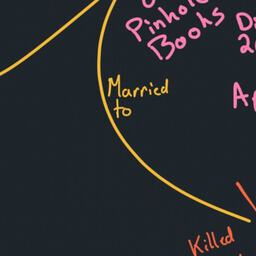 Pinhole
Books
Married
to
Killed